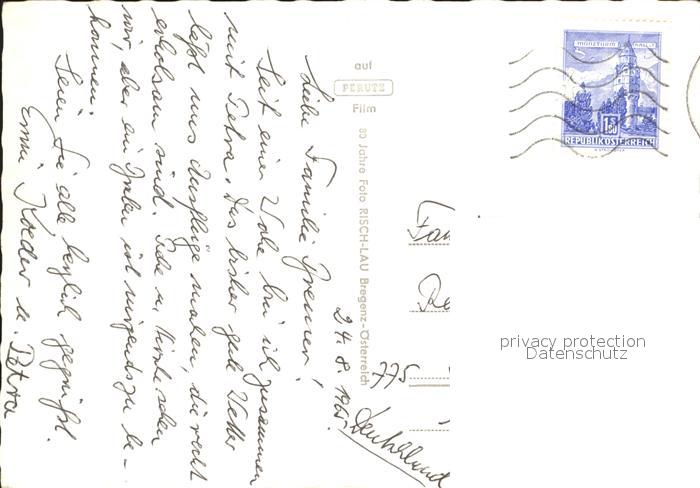 24.8.1965.
Liebe Familie Bremer!
Seit einer Woche bin ich zusammen
mit Petra. Das bisher gute Wetter
läßt uns Ausflüge machen, die recht
erholsam sind. Rehe u. Hirsche sehen
wir, aber ein ist nirgends zu be-
kommen.
Seien Sie alle herzlich gegrüßt.
Emmi Koeder u. Petra
auf
PERUTZ
Film
80 Jahre Foto RISCH-LAU Bregenz-Österreich
MÜNZTURM HALL i. T.
1.50
REPUBLIK ÖSTERREICH
Fam
Re
775
Deutschland
privacy protection
Datenschutz